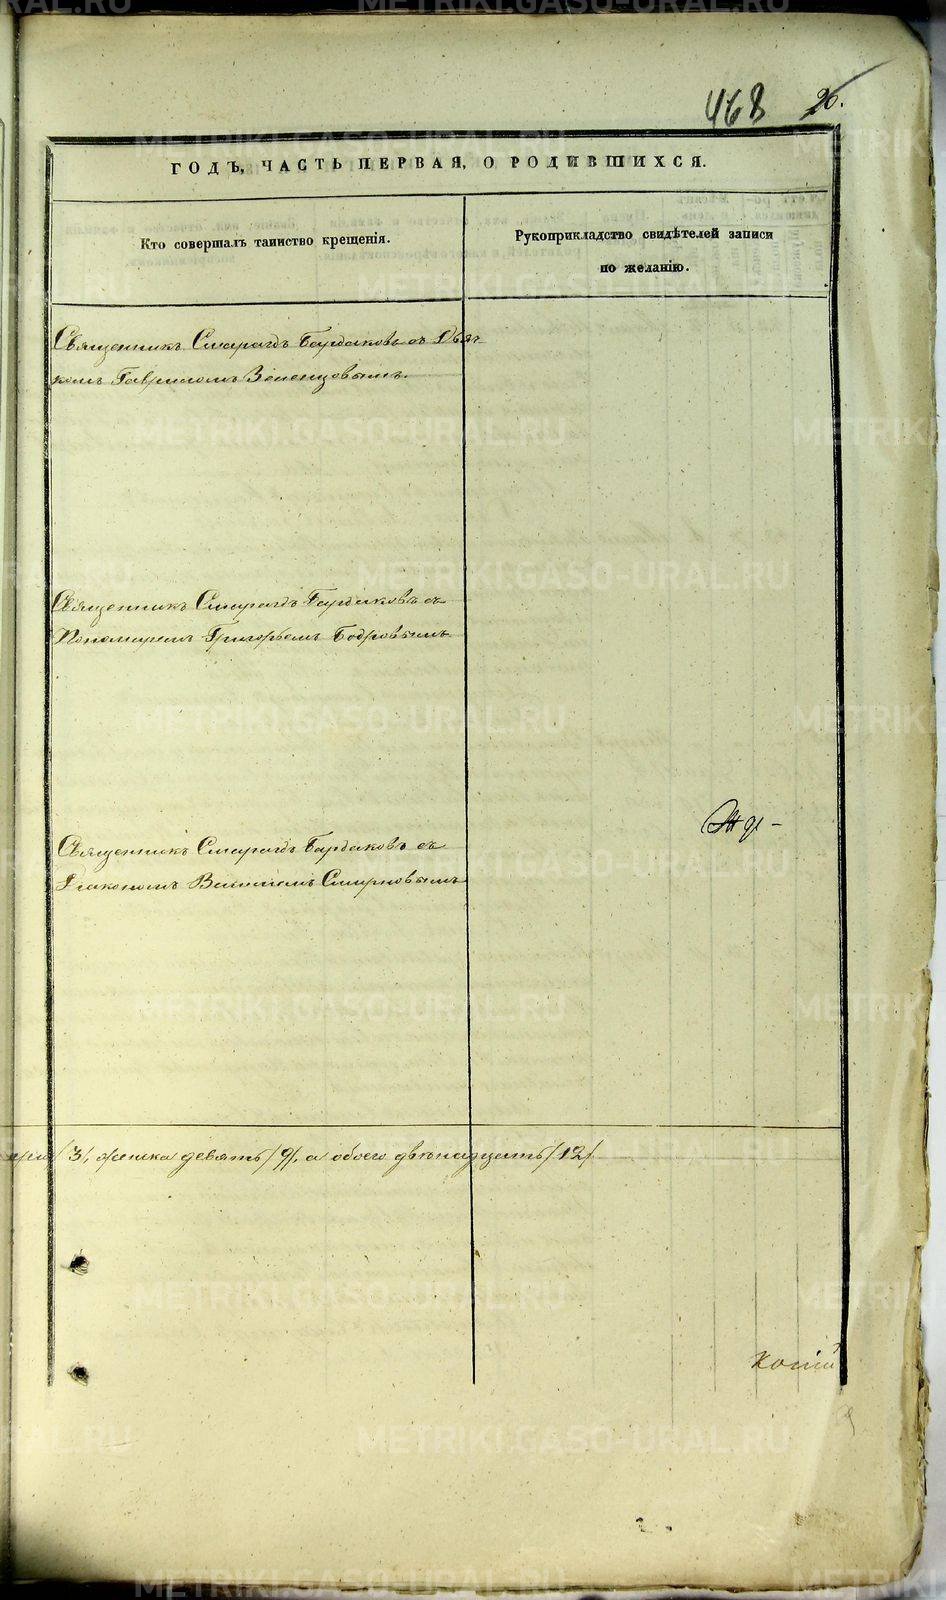 468 26.
ГОДЪ, ЧАСТЬ ПЕРВАЯ, О РОДИВШИХСЯ.
Кто совершалъ таинство крещенія.
Рукоприкладство свидѣтелей записи
по желанію.
Священникъ Смарагдъ Бардаковъ съ Дья
комъ Гавриломъ Зеленцовымъ.
Священникъ Смарагдъ Бардаковъ съ
Пономаремъ Григорьемъ Бодровымъ
Священникъ Смарагдъ Бардаковъ съ
Діакономъ Смирновымъ
/3/, женска девять /9/, а обоего двѣнадцать /12/
METRIKI.GASO-URAL.RU